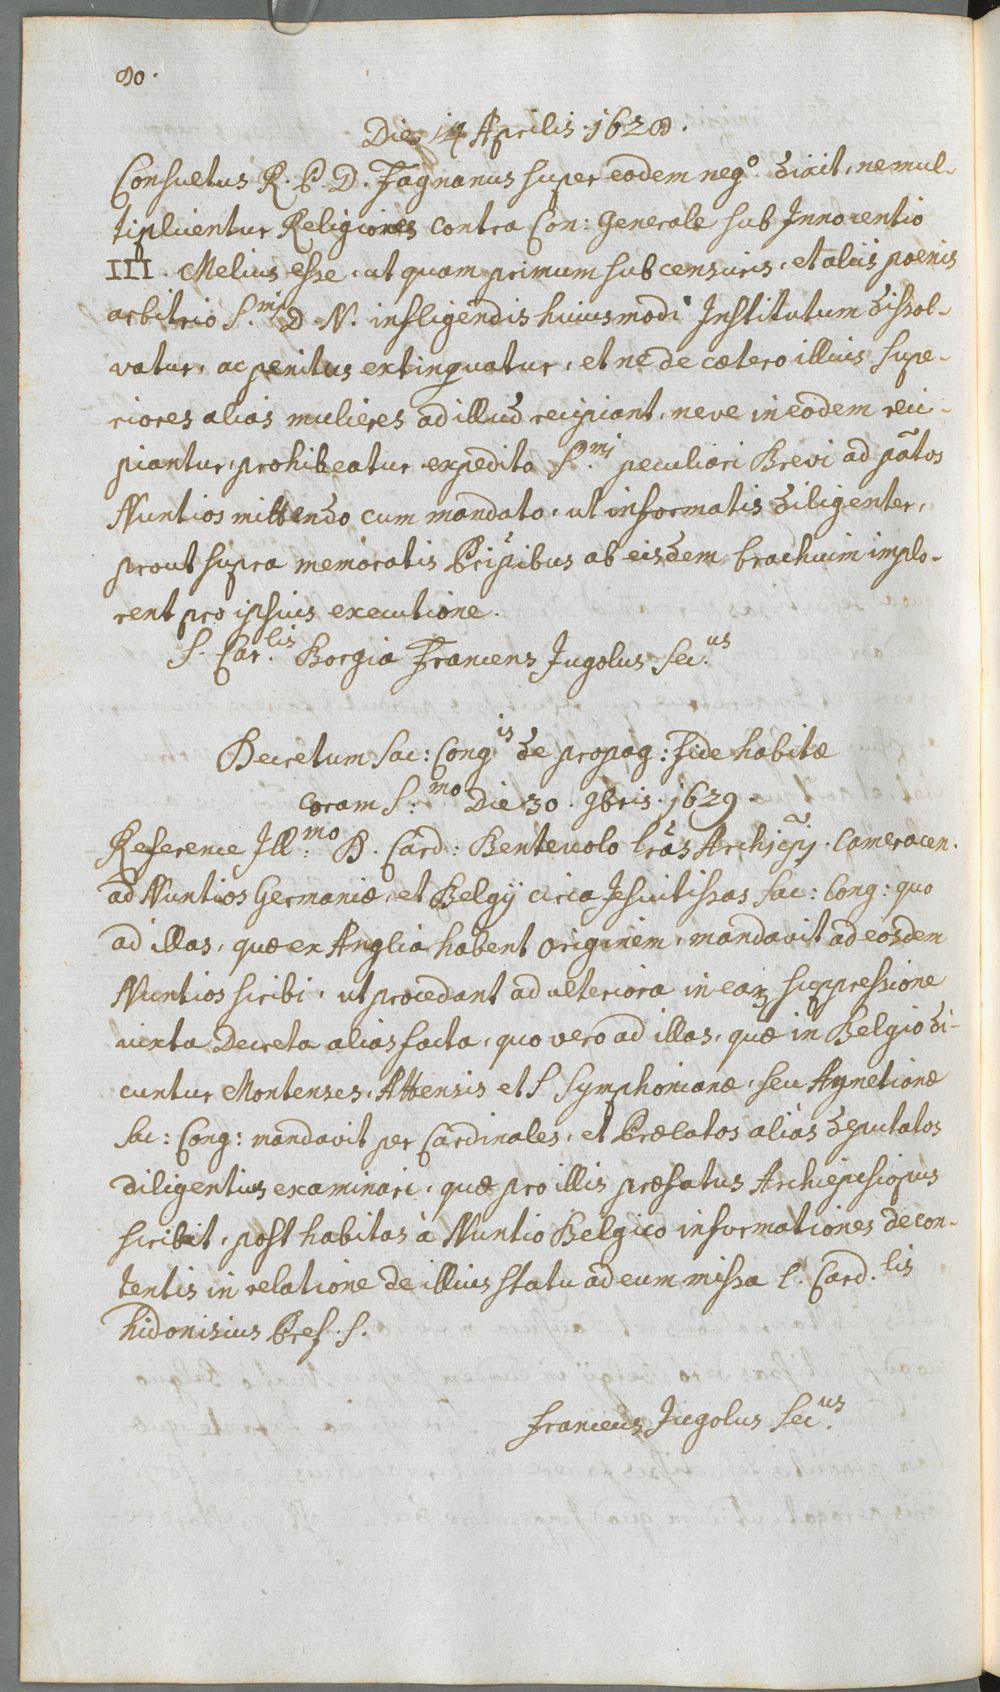 80.
Die 14 Aprilis 1628.
Consultus R. P. D. Fagnanus super eodem neg.º dixit, ne mul-
tiplicentur Religiones contra Con: Generale sub Innocentio
III. Melius esse, ut quam primum sub censuris, et aliis poenis
arbitrio S.mi D. N. infligendis huiusmodi Institutum dissol-
vatur, ac penitus extinguatur, et ne de cætero illius supe-
riores alias mulieres ad illud recipiant, neve in eodem reci-
piantur, prohibeatur expedito S.mi peculiari Brevi ad pãtos
Nuntios mittendo cum mandato, ut informatis diligenter,
prout supra memoratis Pripibus ab eisdem brachium implo-
rent pro ipsius executione.
S. Car.lis Borgia Francens Ingolus Sec.us
Decretum Sac: Cong.is de propag: Fide habitæ
coram S.mo Die 30. 9bris. 1629.
Referente Ill.mo D. Card: Bentevolo lras Archiepi. Cameracen.
ad Nuntios Germaniæ, et Belgij circa Jesuitissas Sac: Cong: quo
ad illas, quæ ex Anglia habent originem, mandavit ad eosdem
Nuntios scribi, ut procedant ad ulteriora in eaʒ suppressione
iuxta Decreta alias facta, quo vero ad illas, quæ in Belgio di-
cuntur Montenses, Attensis et S Symphonianæ, seu Aynetionæ
Sac: Cong: mandavit per Cardinales, et Prælatos aliàs deputatos
diligentius examinari, quæ pro illis præfatus Archiepiscopus
scribit, post habitas à Nuntio Belgico informationes de con-
tentis in relatione de illius statu ad eum missa L. Card.lis
hidonisius Pref. S.
Francens Ingolus Sec.us